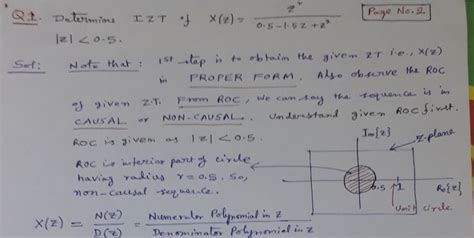 Page No. 2
Q1. Determine IZT of X(z) = z⁴ / 0.5 - 1.5Z + z²
|z| < 0.5.
Sol: Note that: 1st step is to obtain the given ZT i.e., X(z)
in PROPER FORM. Also observe the ROC
of given Z.T. From ROC, we can say the sequence is in
CAUSAL or NON-CAUSAL. Understand given ROC first.
ROC is given as |z| < 0.5.
ROC is interior part of circle
having radius r = 0.5. So,
non-causal sequence.
Im{z}
z-plane
0.5
1
Re{z}
Unit circle
X(z) = N(z) / D(z) = Numerator Polynomial in z / Denominator Polynomial in z